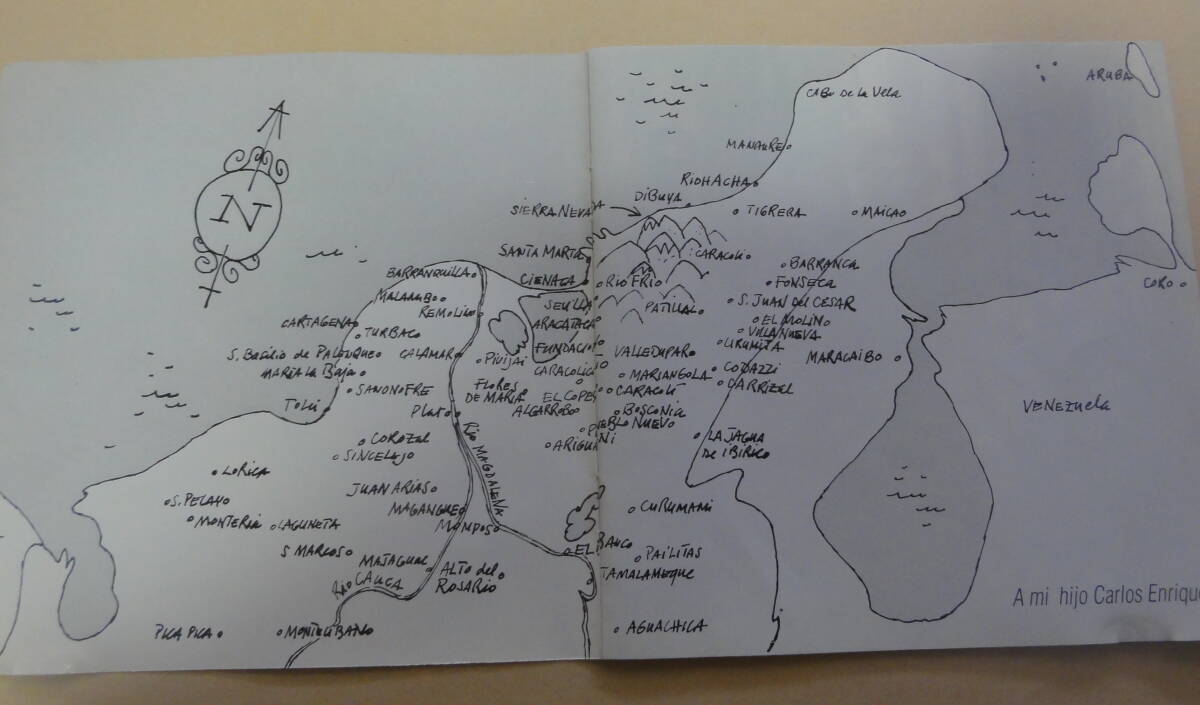 ARUBA
CABO DE LA VELA
N
MANAURE
RIOHACHA
DIBUYA
SIERRA NEVADA
TIGRERA
MAICAO
SANTA MARTA
CARACOLI
BARRANCA
BARRANQUILLA
CIENAGA
RIO FRIO
FONSECA
CORO
MALAMBO
SEVILLA
PATILLAL
S. JUAN DEL CESAR
REMOLINO
CARTAGENA
ARACATACA
EL MOLINO
TURBACO
VILLANUEVA
FUNDACION
URUMITA
S. Basilio de PALENQUE
CALAMAR
PIVIJAI
VALLEDUPAR
MARACAIBO
MARIA LA BAJA
CODAZZI
MARIANGOLA
SANONOFRE
FLORES
DE MARIA
EL COPEY
CARACOLÍ
CARRIZAL
TOLU
Plato
ALGARROBO
BOSCONIA
VENEZUELA
PUEBLO NUEVO
COROZAL
ARIGUANI
LA JAGUA
DE IBIRICO
SINCELEJO
RIO MAGDALENA
LORICA
JUAN ARIAS
S. PELAYO
MAGANGUE
CURUMANI
MONTERIA
LAGUNETA
MOMPOS
S MARCOS
EL BANCO
PAILITAS
MATAGUAL
ALTO del
ROSARIO
TAMALAMEQUE
RIO CAUCA
A mi hijo Carlos Enrique
PICA PICA
MONTELIBANO
AGUACHICA